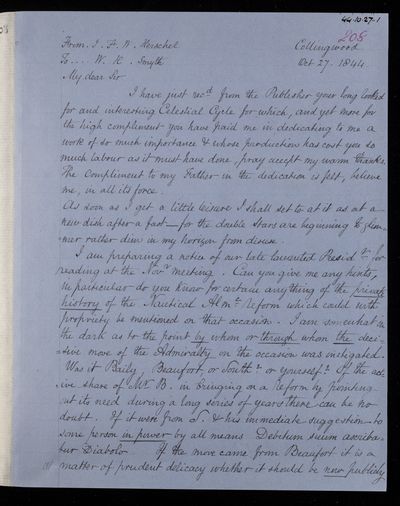 44.10.27.1
208
From J. F. W. Herschel
Collingwood
To .... W. H. Smyth
Oct 27. 1844
My dear Sir
I have just recd from the Publisher your long looked
for and interesting Celestial Cycle for which, and yet more for
the high compliment you have paid me in dedicating to me a
work of so much importance & whose production has cost you so
much labour as it must have done, pray accept my warm thanks.
The Compliment to my Father in the dedication is felt, believe
me, in all its force.
As soon as I get a little leisure I shall set to at it as at a
new dish after a fast — for the double Stars are beginning to glim-
mer rather dim in my horizon from desue.
I am preparing a notice of our late lamented Presidt for
reading at the Novr meeting. Can you give me any hints,
in particular do you know for certain anything of the private
history of the Nautical Almc reform which could with
propriety be mentioned on that occasion. I am somewhat in
the dark as to the point by whom or through whom the deci-
sive move of the Admiralty on the occasion was instigated.
Was it Baily, Beaufort, or South or yourself? Of the act-
ive share of Mr B. in bringing on a Reform by pointing
out its need during a long series of years there can be no
doubt. If it were from S. & his immediate suggestion to
some person in power by all means Debitum suum ascriba-
tur Diabolo. If the move came from Beaufort it is a
matter of prudent delicacy whether it should be now publicly